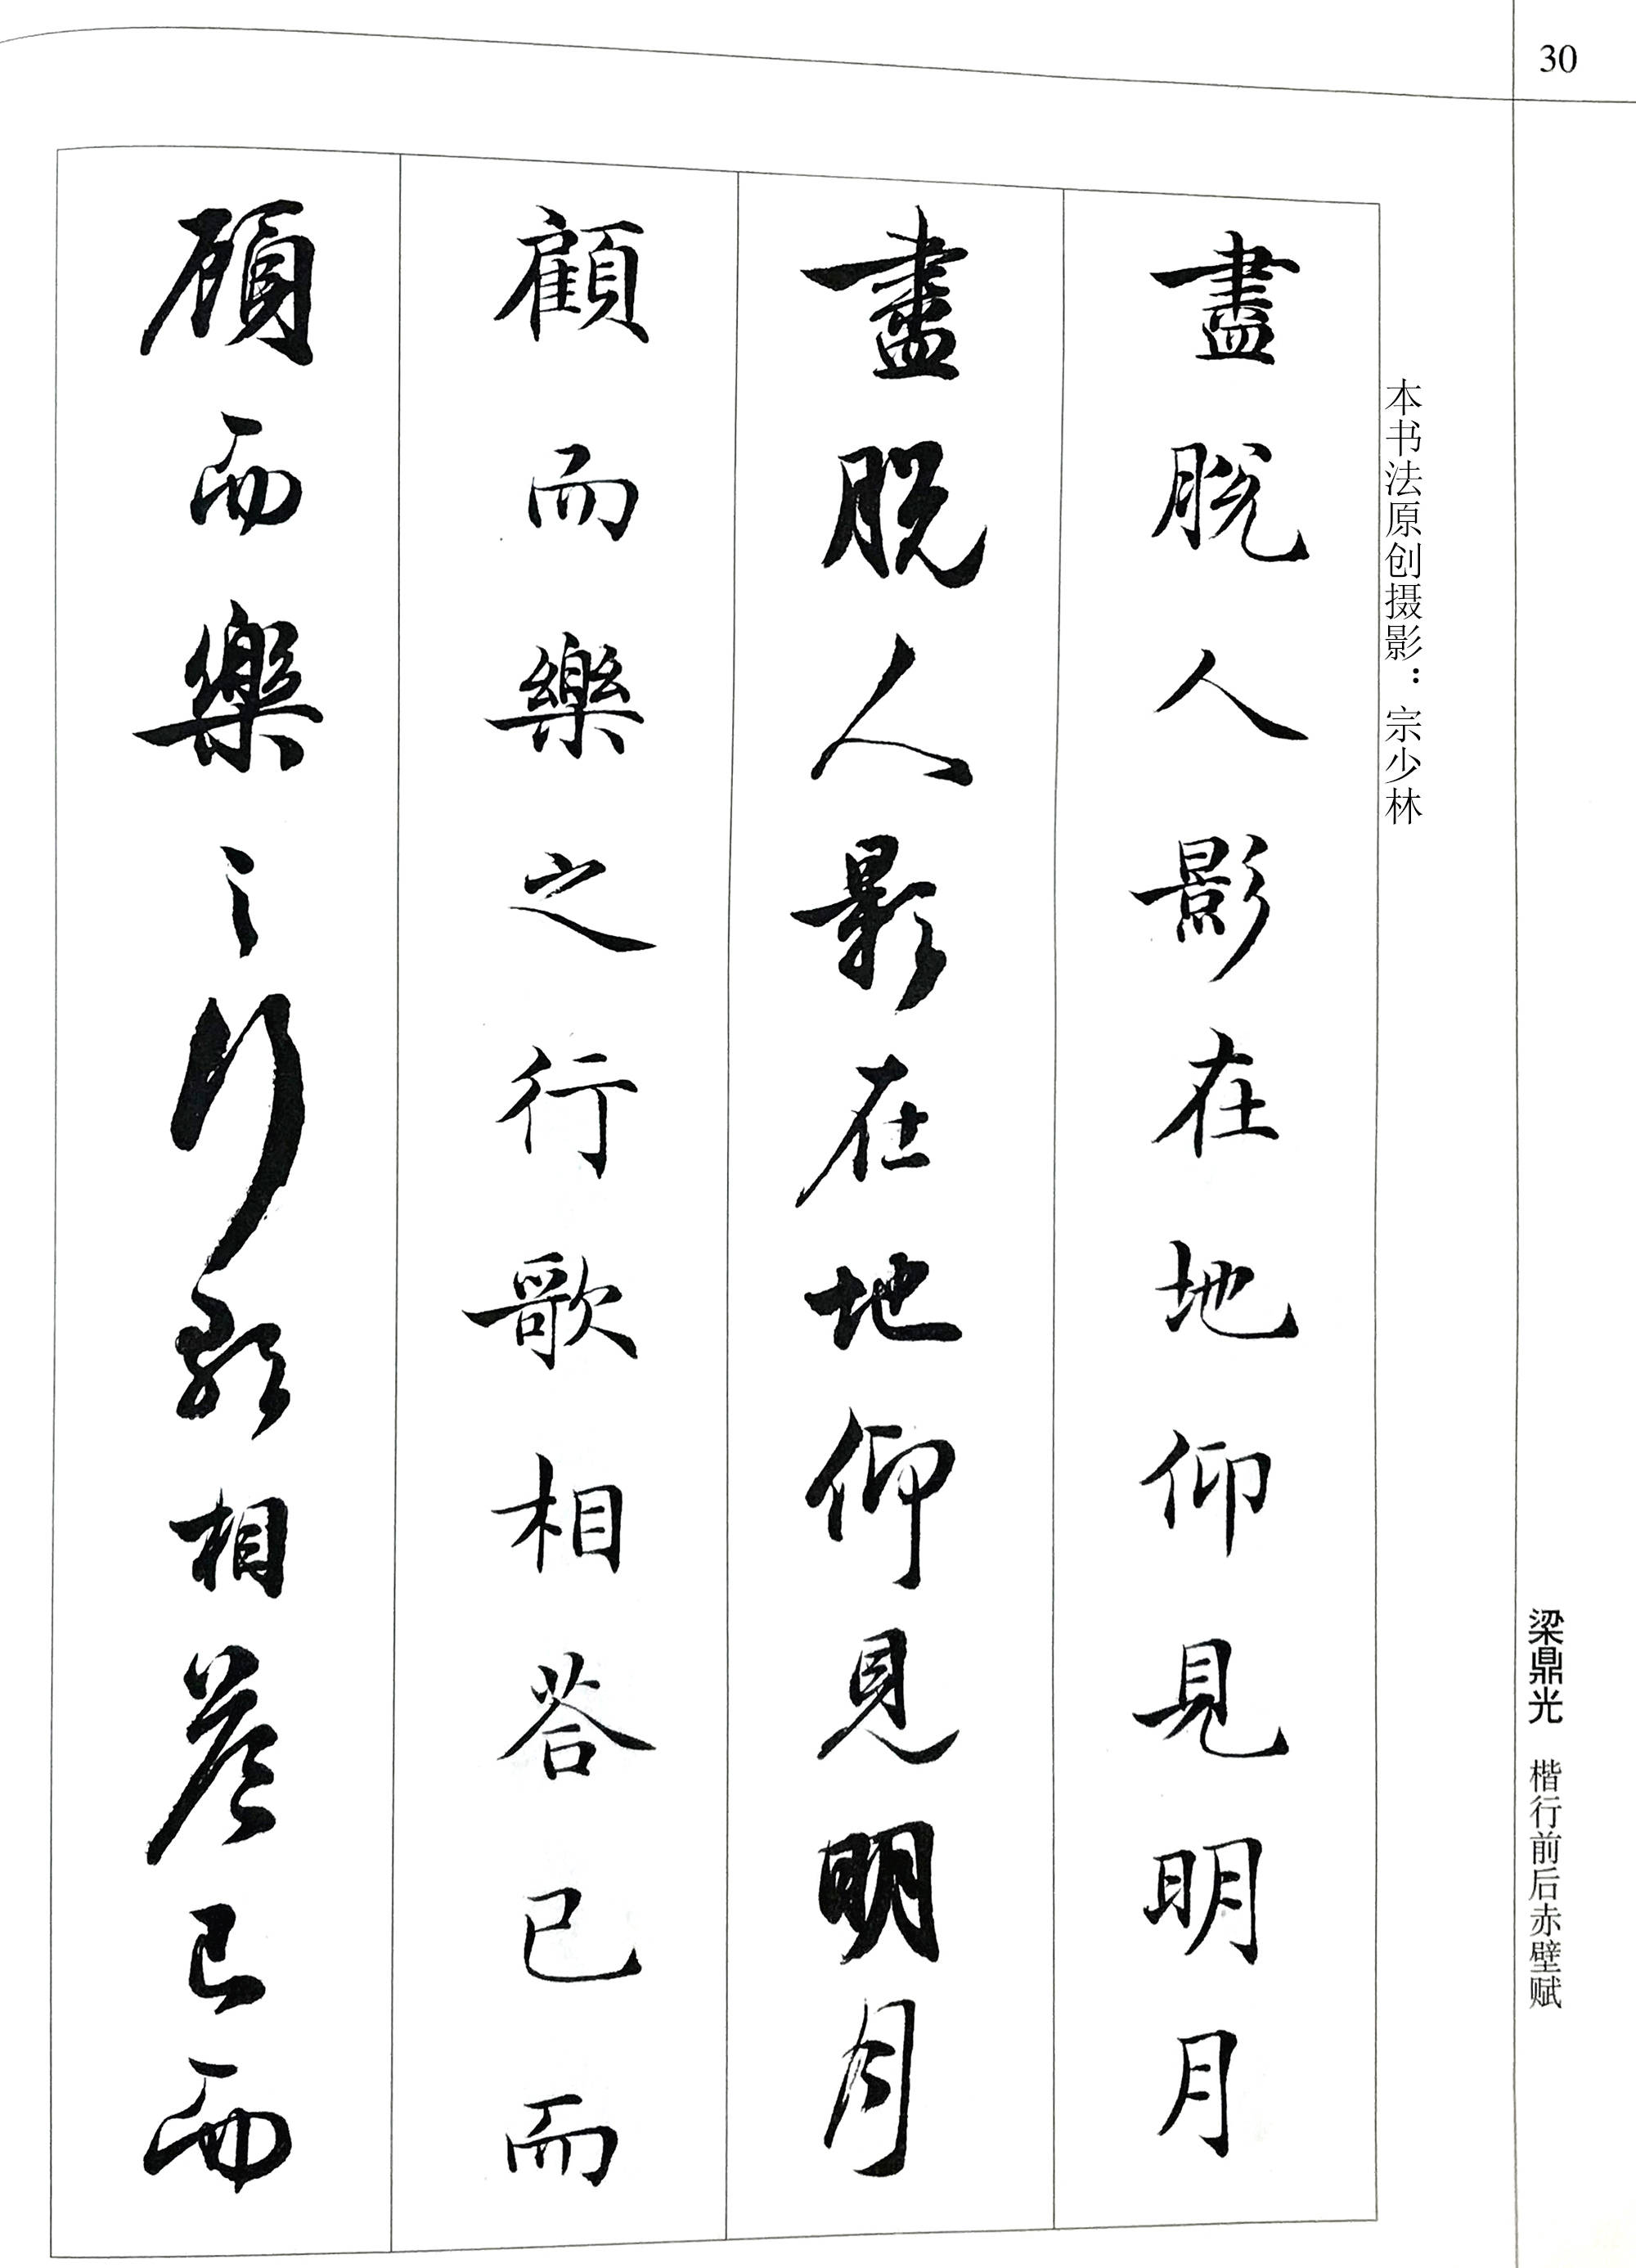 30
梁鼎光 楷行前后赤壁赋
本书法原创摄影：宗少林
盡脫人影在地仰見明月
盡脫人影在地仰見明月
顧而樂之行歌相荅已而
顧而樂之行歌相荅已而